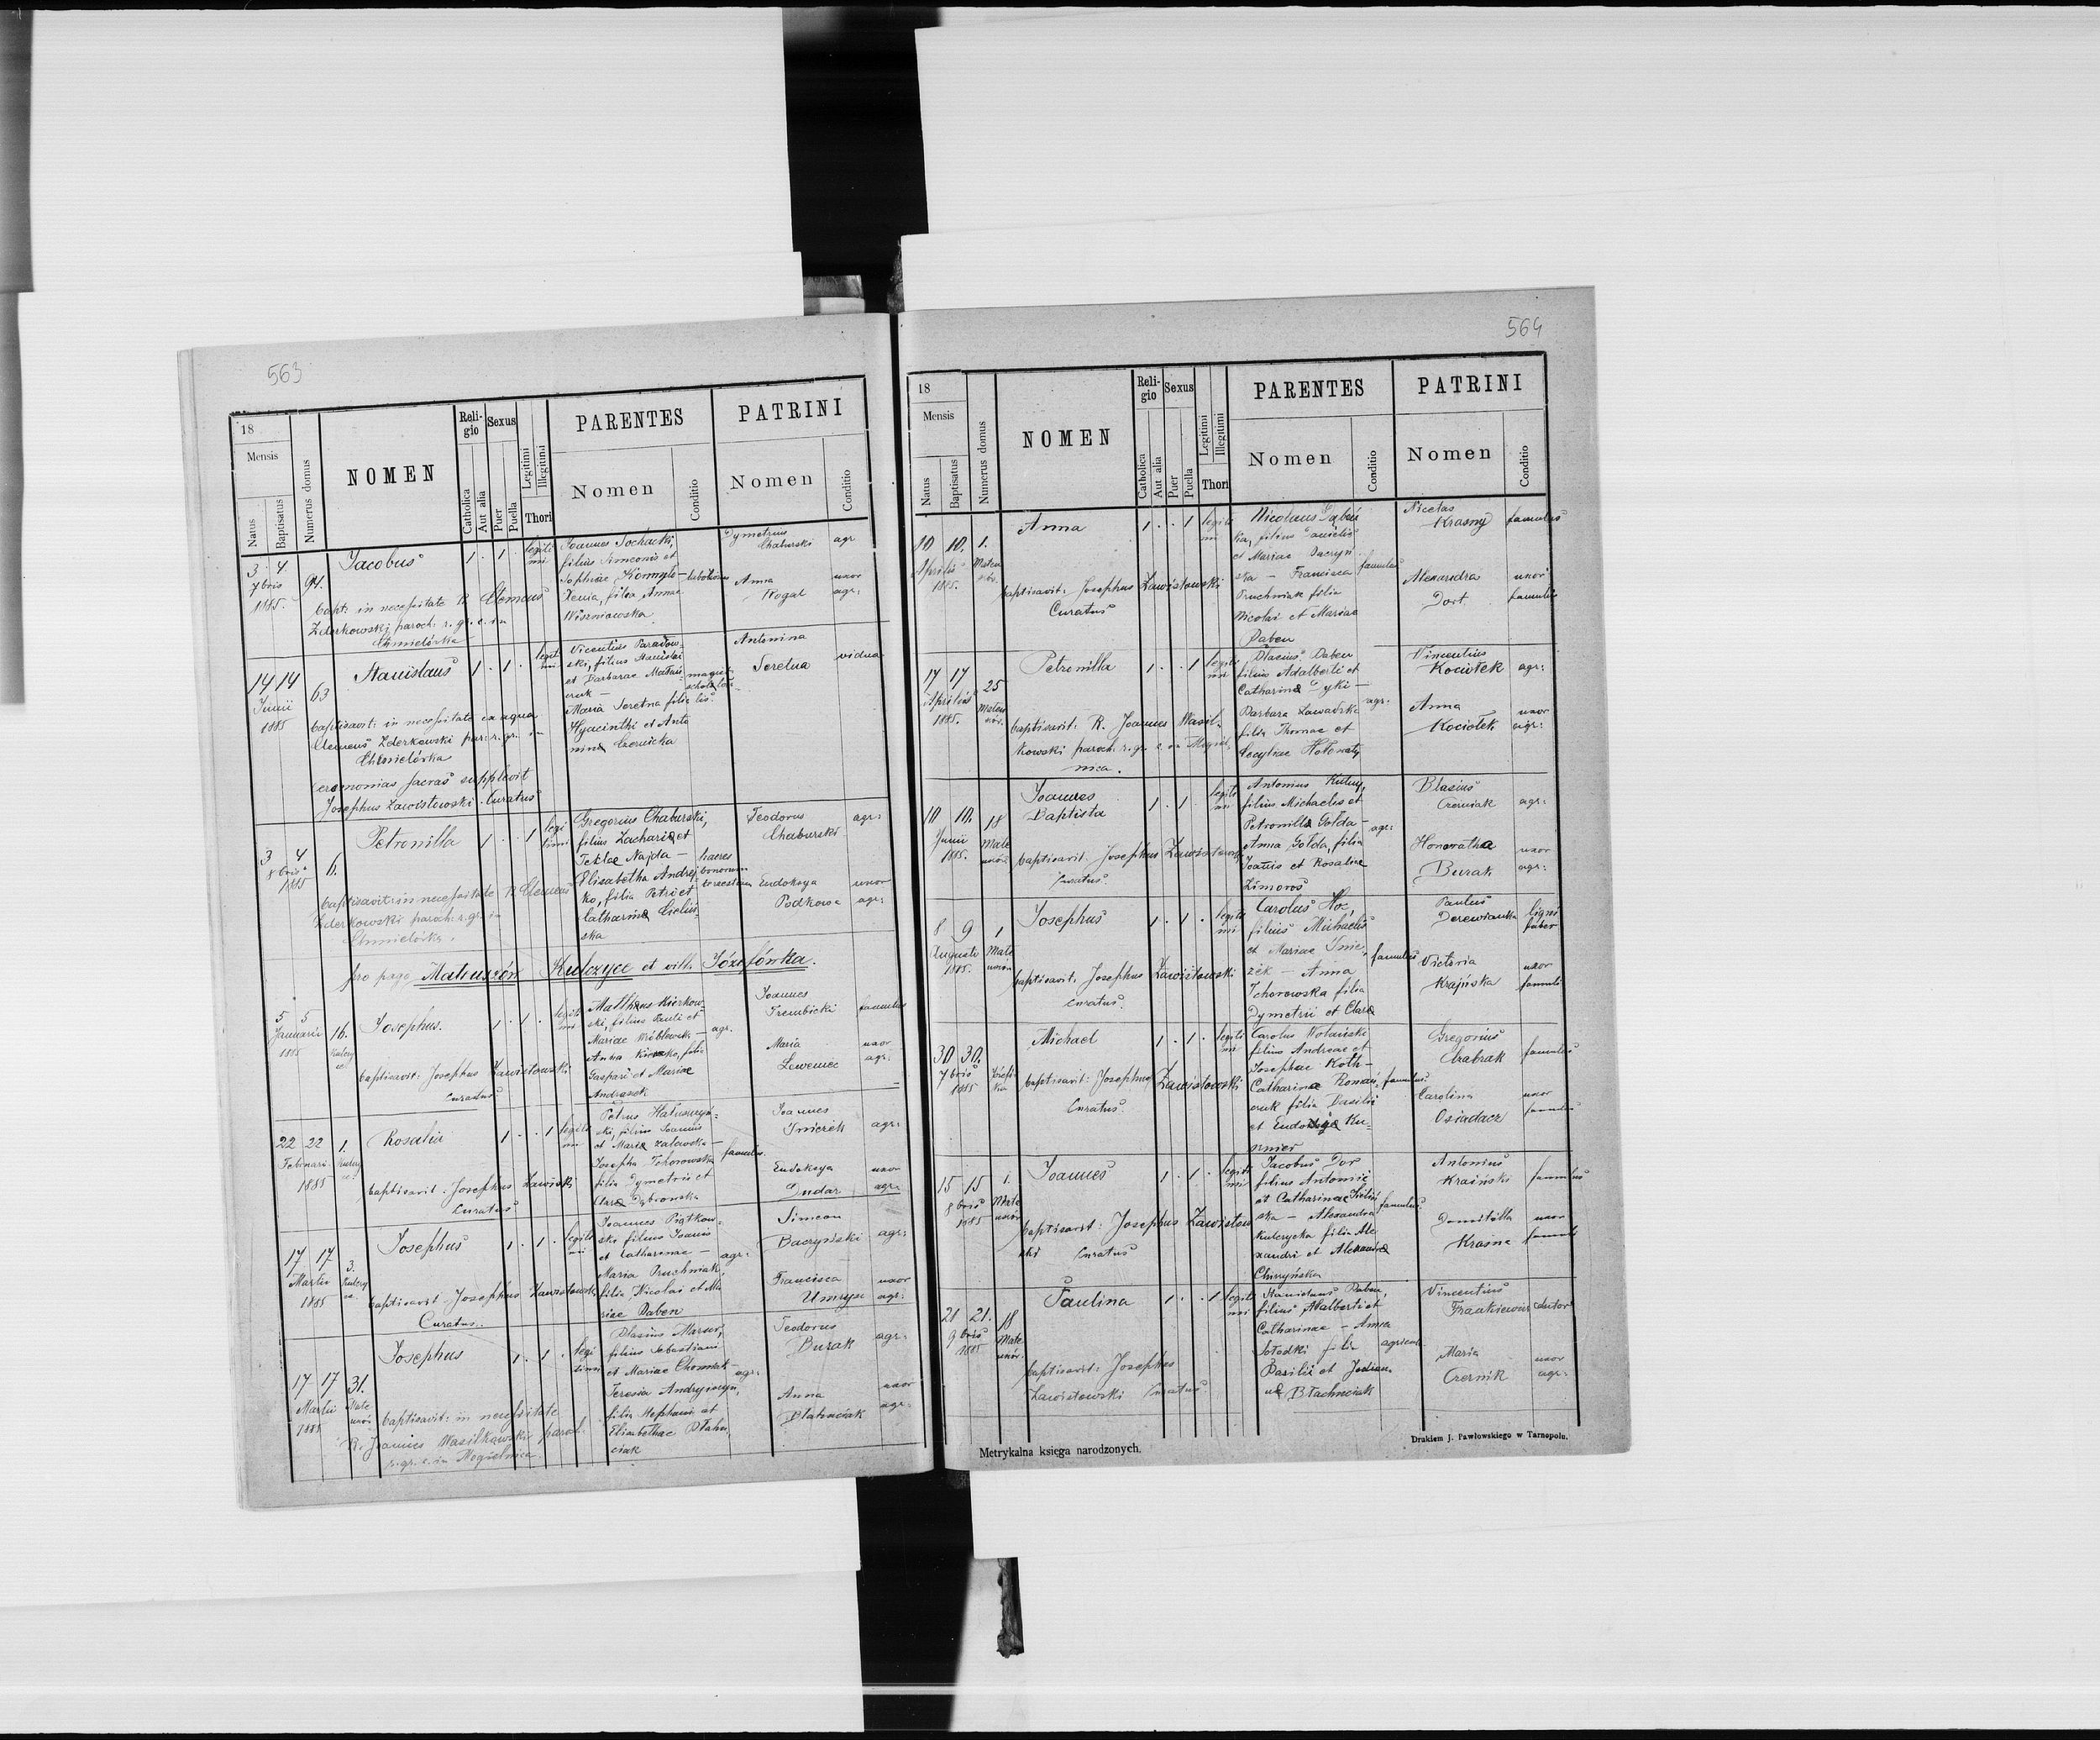 563
18
Mensis
Natus
Baptisatus
Numerus domus
NOMEN
Religio
Catholica
Aut alia
Sexus
Puer
Puella
Legitimi
Illegitimi
Thori
PARENTES
Nomen
Conditio
PATRINI
Nomen
Conditio
3 4
7bris
1885.
94.
Jacobus
1 . 1 .
legiti
mi
bapt: in necessitate R. Clemens
Zderkowski paroch: r. gr. c. in
Chmielówka
Joannes Sochacki,
filius Simeonis et
Sophiae
Xenia, filia Annae
Wiszniowska.
Dymetrius
Chaburski
agr
Anna
Rogal
uxor
agr:
14 14
Junii
1885
63
Stanislaus
1 . 1 .
legiti
mi
baptisavit: in necessitate ex aqua
Clemens Zderkowski par: r. gr. in
Chmielówka
ceremonias sacras supplevit
Josephus Zawistowski Curatus
Vicentius Paradow-
ski, filius Stanislai
et Barbarae
Maria Seretna filia
Hyacinthi et Anto
ninae Czernicka
Antonina
Seretna
vidua
3 4
8bris
1885
6.
Petronilla
1 . . 1
legi
timi
baptisavit: in necessitate R. Clemens
Zderkowski paroch: r. gr. in
Chmielówka.
Gregorius Chaburski,
filius Zachariae et
Teklae Najda –
Elisabetha Andrej
ko, filia Petri et
Catharinae
ska
haeres
bonorum
terrestrium
Teodorus
Chaburski
agr:
Eudokeya
Podkowa
uxor
agr:
pro pago Matuszówka Kulczyce et vill. Józefówka.
5 5
Januarii
1885
16.
Josephus.
1 . 1 .
legiti
mi
baptisavit: Josephus Zawistowski
Curatus
Mathaeus Kierkow-
ski, filius Pauli et
Mariae Wróblewski –
Anna
Gaspari et Mariae
Andrasok
agr.
Joannes
Trembicki
famulus
Maria
Lewenec
uxor
agr:
22 22
Februarii
1885
1.
Rosalia
1 . . 1
legiti
mi
baptisavit: Josephus Zawiski
Curatus
Petrus Hałuszyn-
ski, filius Joannis
et Mariae Zalewska –
Josepha Tchorowska
filia Dymetrii et
Clarae Dąbrowska
famulus.
Joannes
Smiczek
agr:
Eudokeya
Dudar
uxor
agr.
17 17
Martii
1885
3.
Josephus
1 . 1 .
legiti
mi
baptisavit Josephus Zawistowski
Curatus.
Joannes Piątkow-
ski filius Joannis
et Catharinae –
Maria Pruchniak,
filia Nicolai et Ma
riae Daben
agr:
Simeon
Baczyński
agr:
Francisca
Umrysz
uxor
agr:
17 17
Martii
1885
31.
Josephus
1 . 1 .
legi
timi
baptisavit: in necessitate
R. Joannes Wasilkowski paroch.
r. gr. c. in Mogielnica.
Blasius Marzor,
filius Sebastiani
et Mariae
Teresia Andryszczyn,
filia Stephani et
Elisabethae Błahu
ciak
agr:
Teodorus
Burak
agr:
Anna
Błahuciak
uxor
agr:
564
18
Mensis
Natus
Baptisatus
Numerus domus
NOMEN
Religio
Catholica
Aut alia
Sexus
Puer
Puella
Legitimi
Illegitimi
Thori
PARENTES
Nomen
Conditio
PATRINI
Nomen
Conditio
10 10.
Aprilis
1885.
1.
Anna
1 . . 1
legiti
mi
baptisavit: Josephus Zawistowski
Curatus
Nicolaus
filius Danielis
et Mariae Baczyń
ska – Francisca
Pruchniak filia
Nicolai et Mariae
Daben
famulus
Nicetas
Krasny
famulus
Alexandra
Dort
uxor
famuli
17 17
Aprilis
1885.
25
Petronilla
1 . . 1
legiti
mi
baptisavit: R. Joannes Wasil-
kowski paroch: r. gr. c. in Mogiel
nica.
Blasius Daben
filius Adalberti et
Catharinae Dyki –
Barbara Zawadzka
filia Thomae et
Cecyliae Hołowaty
agr:
Vincentius
Kociołek
agr:
Anna
Kociołek
uxor
agr:
10 10.
Junii
1885.
18
Joannes
Baptista
1 . 1
legiti
mi
baptisavit Josephus Zawistowski
Curatus
Antonius Kulczy,
filius Michaelis et
Petronillae Golda –
Anna Golda, filia
Joannis et Rosaliae
Zimoros
agr:
Blasius
Czerniak
agr:
Honoratha
Burak
uxor
agr:
8 9
Augusti
1885.
1
Josephus
1 . 1 .
legiti
mi
baptisavit: Josephus Zawistowski
Curatus
Carolus
filius Michaelis
et Mariae Smic-
zek – Anna
Tchorowska filia
Dymetrii et Clarae
famulus
Paulus
Derewianka
ligni
faber
Victoria
Krajńska
uxor
famuli
30 30.
7bris
1885
Michael
1 . 1 .
legiti
mi
baptisavit: Josephus Zawistowski
Curatus
Carolus Wolański
filius Andreae et
Josephae Koth –
Catharina Romań,
czuk filia Basilii
et Eudokyae Ku-
sznier
famulus
Gregorius
Chabrak
famulus
Carolina
Osiadacz
uxor
famuli
15 15
8bris
1885
1.
Joannes
1 . 1 .
legiti
mi
baptisavit: Josephus Zawistow
ski Curatus
Jacobus Dor
filius Antonii
et Catharinae
ska – Alexandra
Kulczycka filia Ale
xandri et Alexandrae
Chirzyńska
famulus
Antonius
Kraiński
famulus
Domitilla
Krasna
uxor
famuli
21 21.
9bris
1885
18
Paulina
1 . . 1
legiti
mi
baptisavit: Josephus
Zawistowski Curatus
Stanislaus Daben,
filius Adalberti et
Catharinae – Anna
Sołodki filia
Basilii et
Błachuciak
agricol.
Vincentius
Frankiewicz
Maria
Czernik
uxor
agr:
Metrykalna księga narodzonych.
Drukiem J. Pawłowskiego w Tarnopolu.